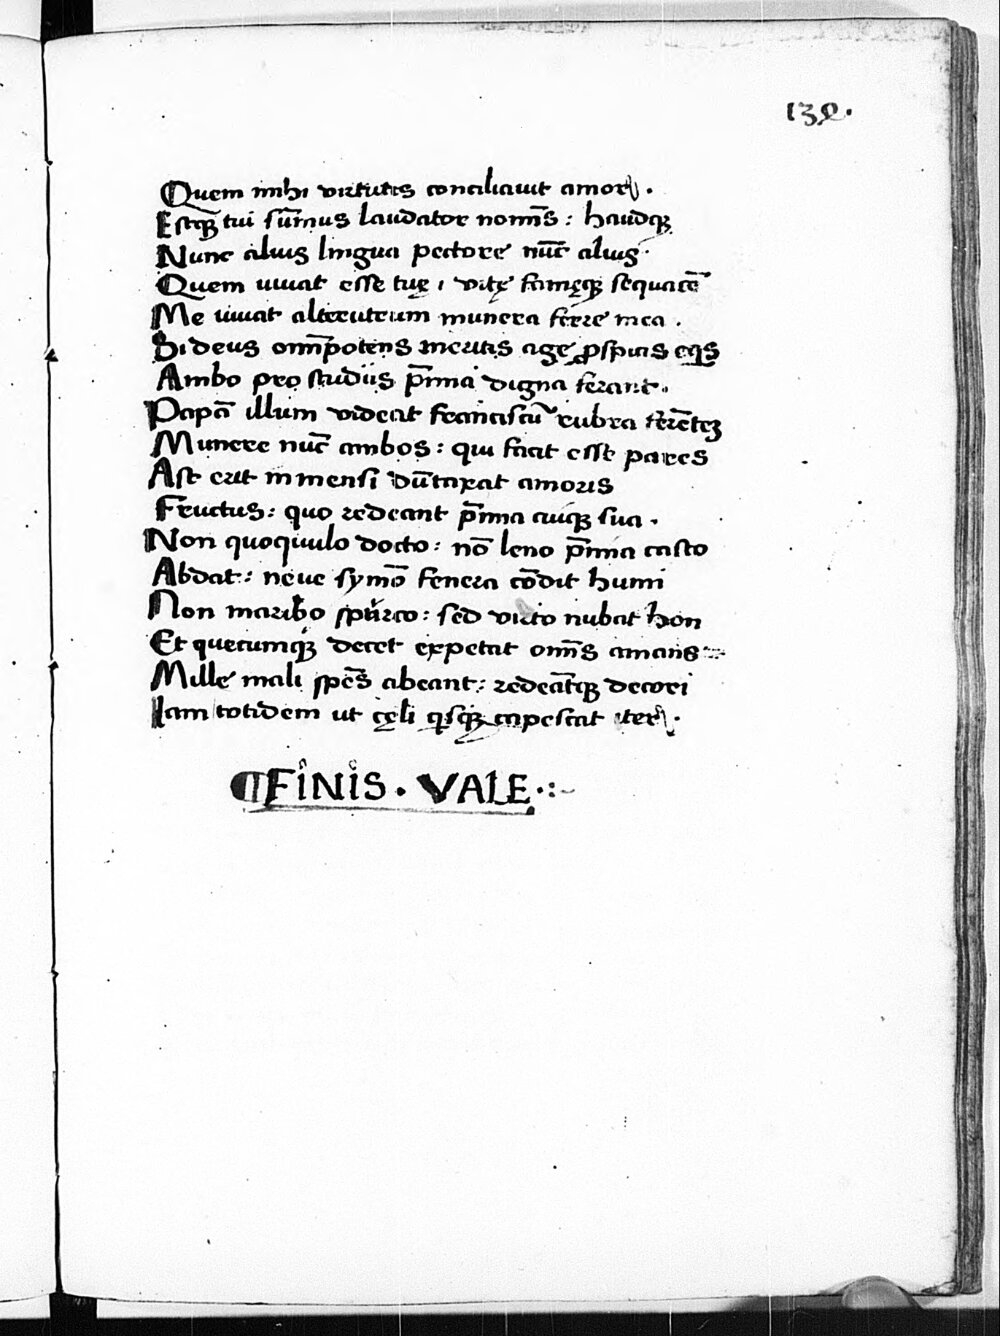 132.
Quem mihi virtutis conciliavit amor.
Estq̃ tui sũmus laudator nomĩs: haudq̃
Nunc alius lingua pectore nũc alius.
Quem vivat esse tuę, vitę famęq̃ sequacẽ
Me vivat alterutrum munera ferre mea.
Si deus omĩpotens meritis age ꝓspicis eq̃s
Ambo pro studiis p̃mia digna ferant.
Papã illum videat franciscũ rubra ferẽteȝ
Munere nũc ambos: qui facit esse pares
Ast erit immensi dũtaxat amoris
Fructus: quo redeant p̃mia cuiq̃ sua.
Non quoquulo docto: nõ leno p̃mia casto
Abdat: neve symõ fenera cõdit humi
Non maribo spurco: sed virto nubat hon
Et quecumq̃ decet expetat omĩs amans
Mille mali spẽs abeant: redeãtq̃ decori
Iam totidem ut cęli q̃sq̃ capescat iter.
¶FINIS. VALE.:~